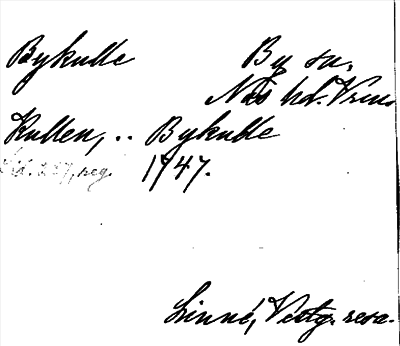 Bykulle By sn,
Näs hd. Vrml.
Kullen, .. Bykulle
1747.
s. 257, reg.
Linné, Vestg. resa.